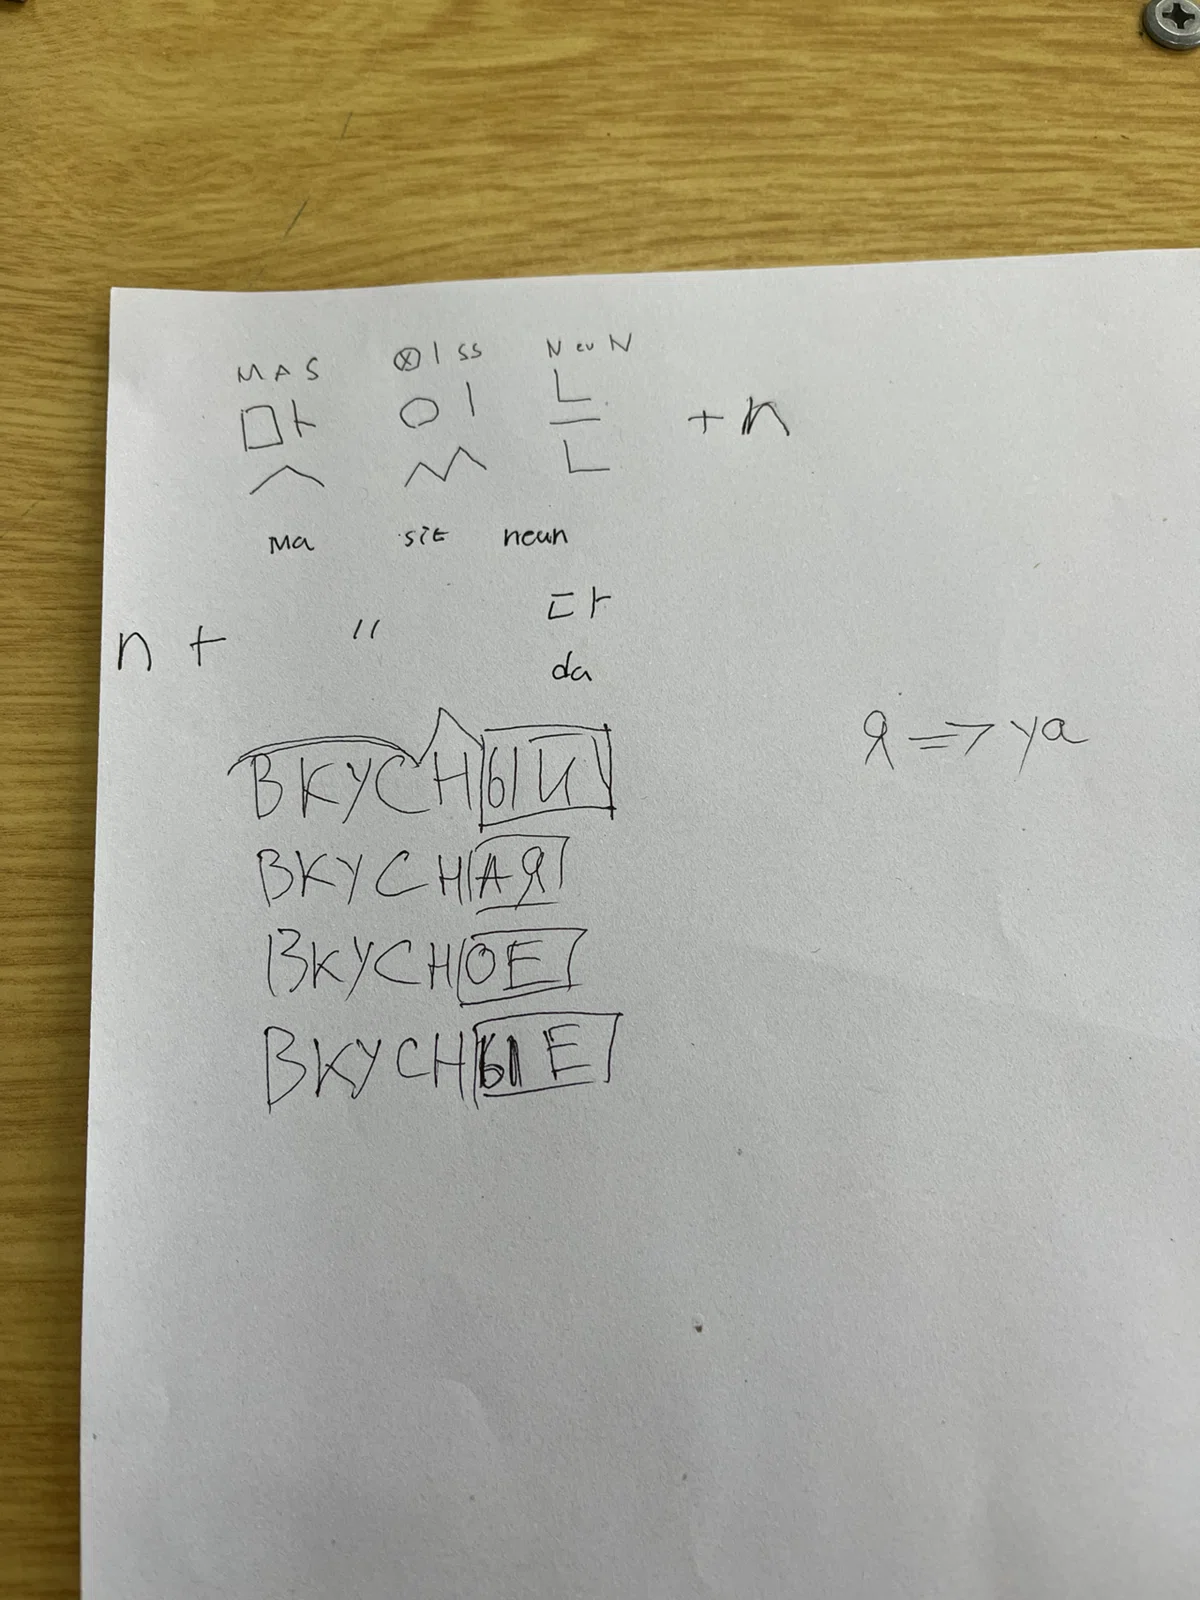 MAS ⊗I ss NeuN
맛 있 는 + n
Ma sit neun
n + " 다
da
Я => ya
ВКУСНЫЙ
ВКУСНАЯ
ВКУСНОЕ
ВКУСНЫЕ